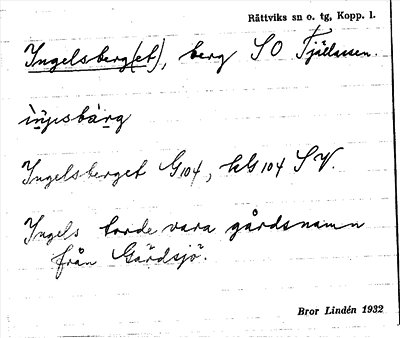 Rättviks sn o. tg, Kopp. l.
Ingelsberg(et), berg SO Fjällassen.
ìŋ̣ɪsbàrg
Ingelsberget G104, hG104 SV.
Ingels torde vara gårdsnamn
från Gärdsjö.
Bror Lindén 1932